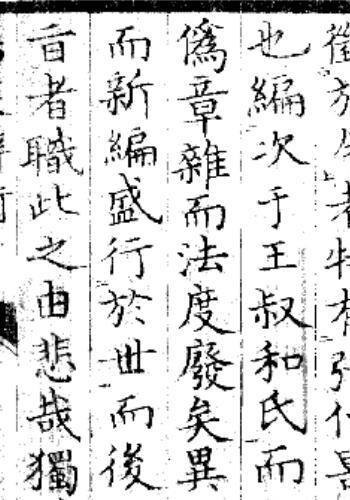 也編次于王叔和氏而
僞章雜而法度廢矣異
而新編盛行於丗而後
盲者職此之由悲哉獨